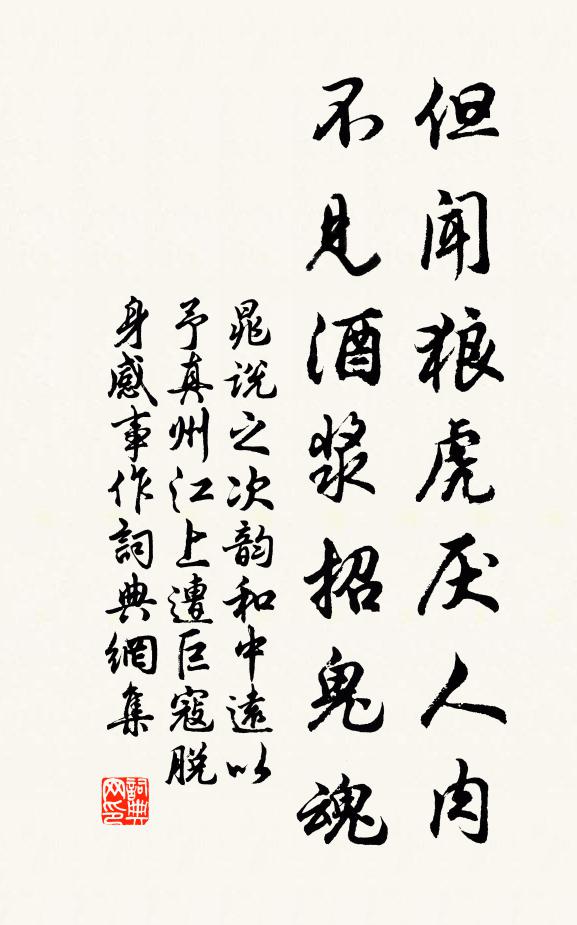 但闻狼虎厌人肉
不见酒浆招鬼魂
晁说之次韵和中遠以
予真州江上遭巨寇脱
身感事作詞典網集
詞典网印